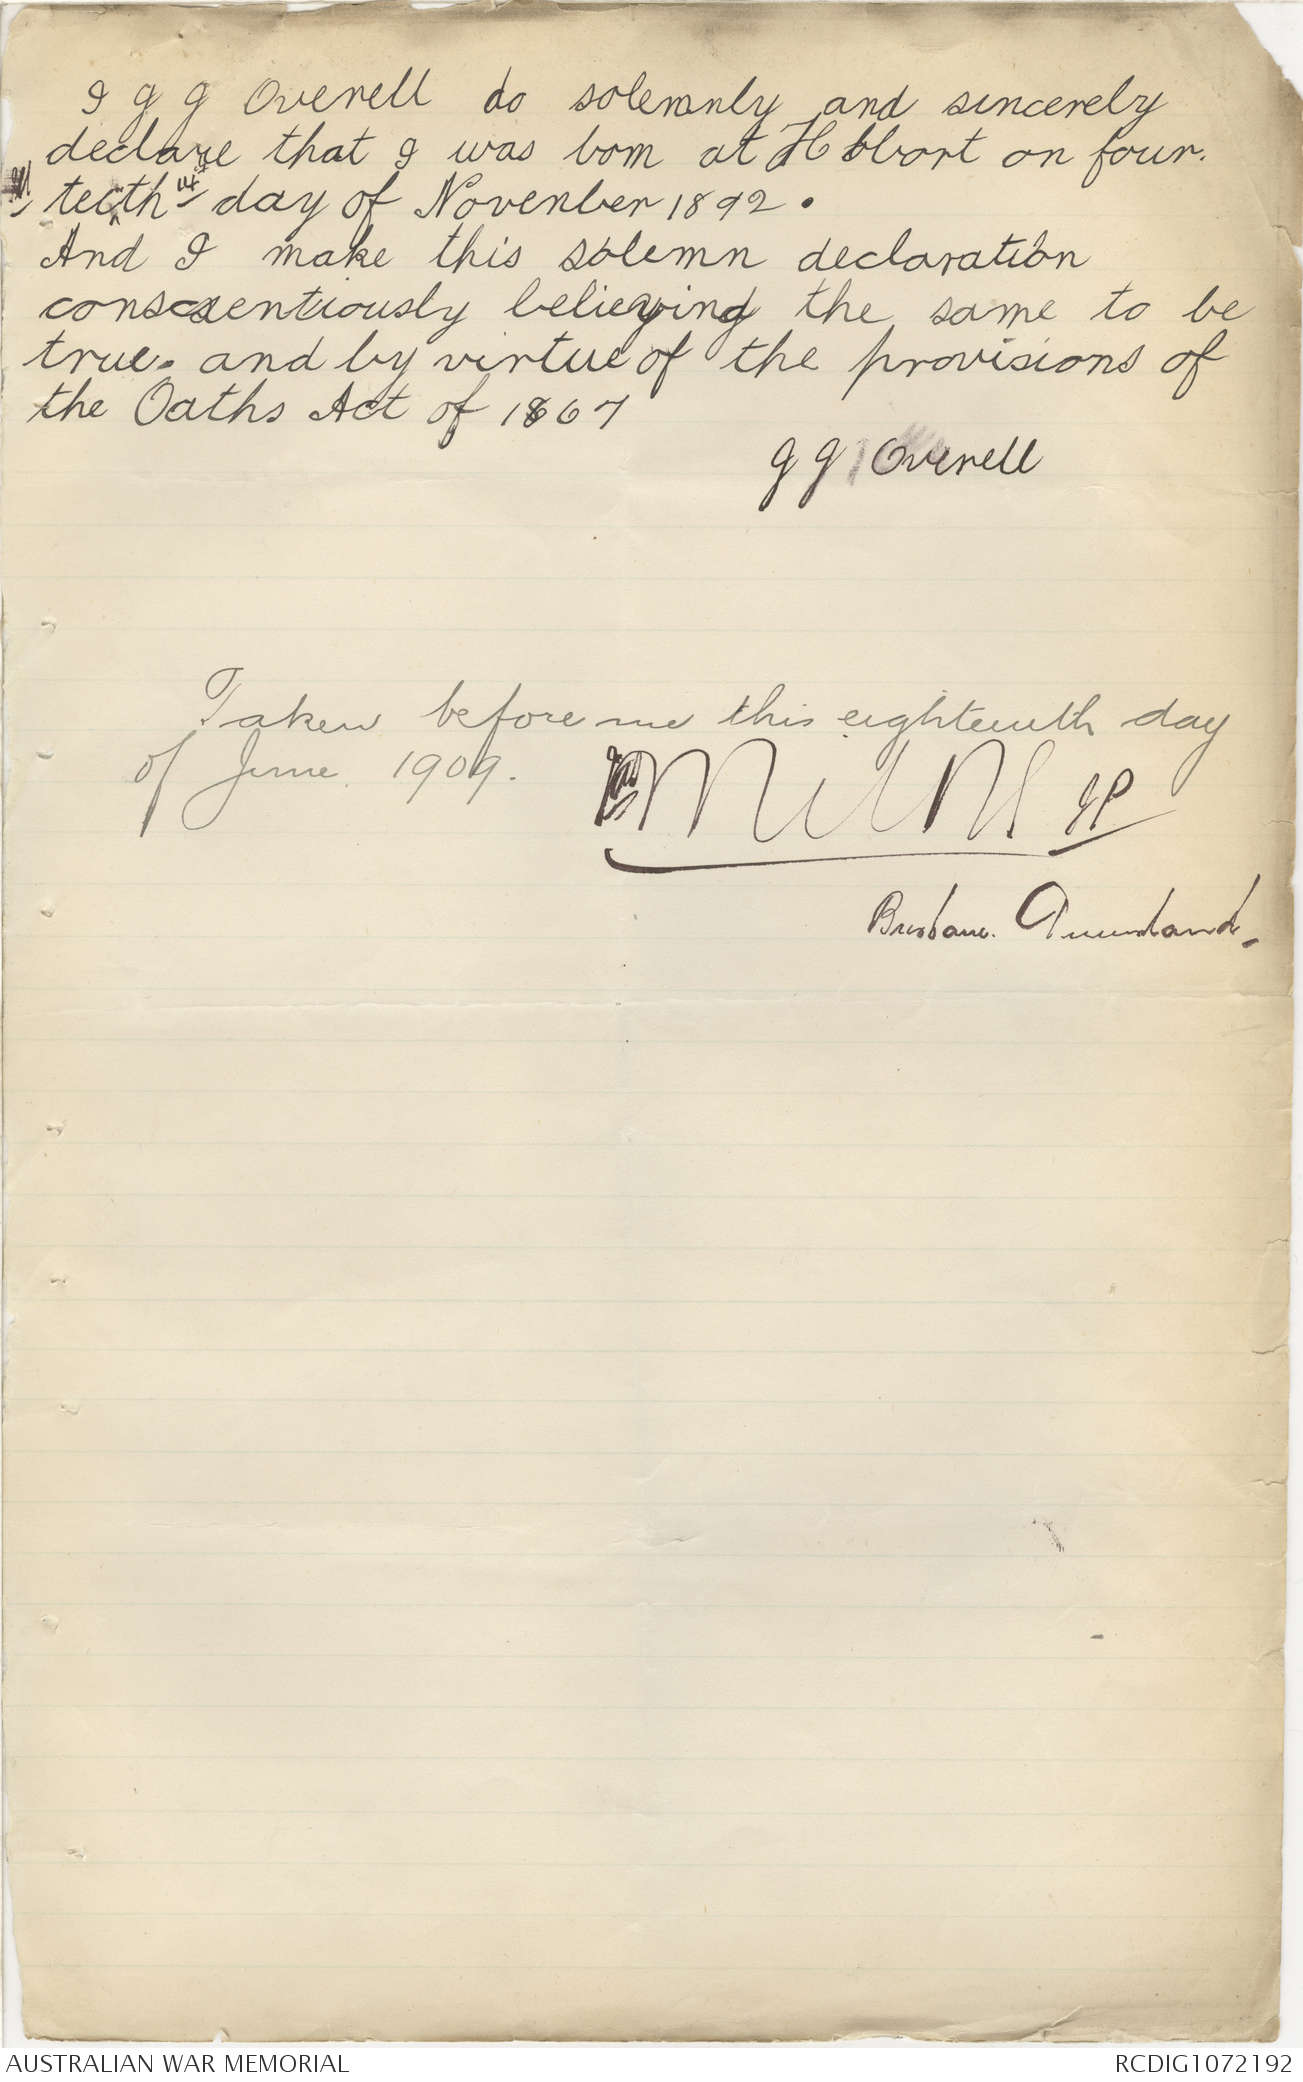 I G G Overell do solemnly and sincerely
declare that I was born at Hobart on four-
teenth 14th day of November 1892.
And I make this solemn declaration
conscientiously believing the same to be
true. and by virtue of the provisions of
the Oaths Act of 1867
G G Overell
Taken before me this eighteenth day
of June 1909.
JP
Brisbane. Queensland.
AUSTRALIAN WAR MEMORIAL
RCDIG1072192